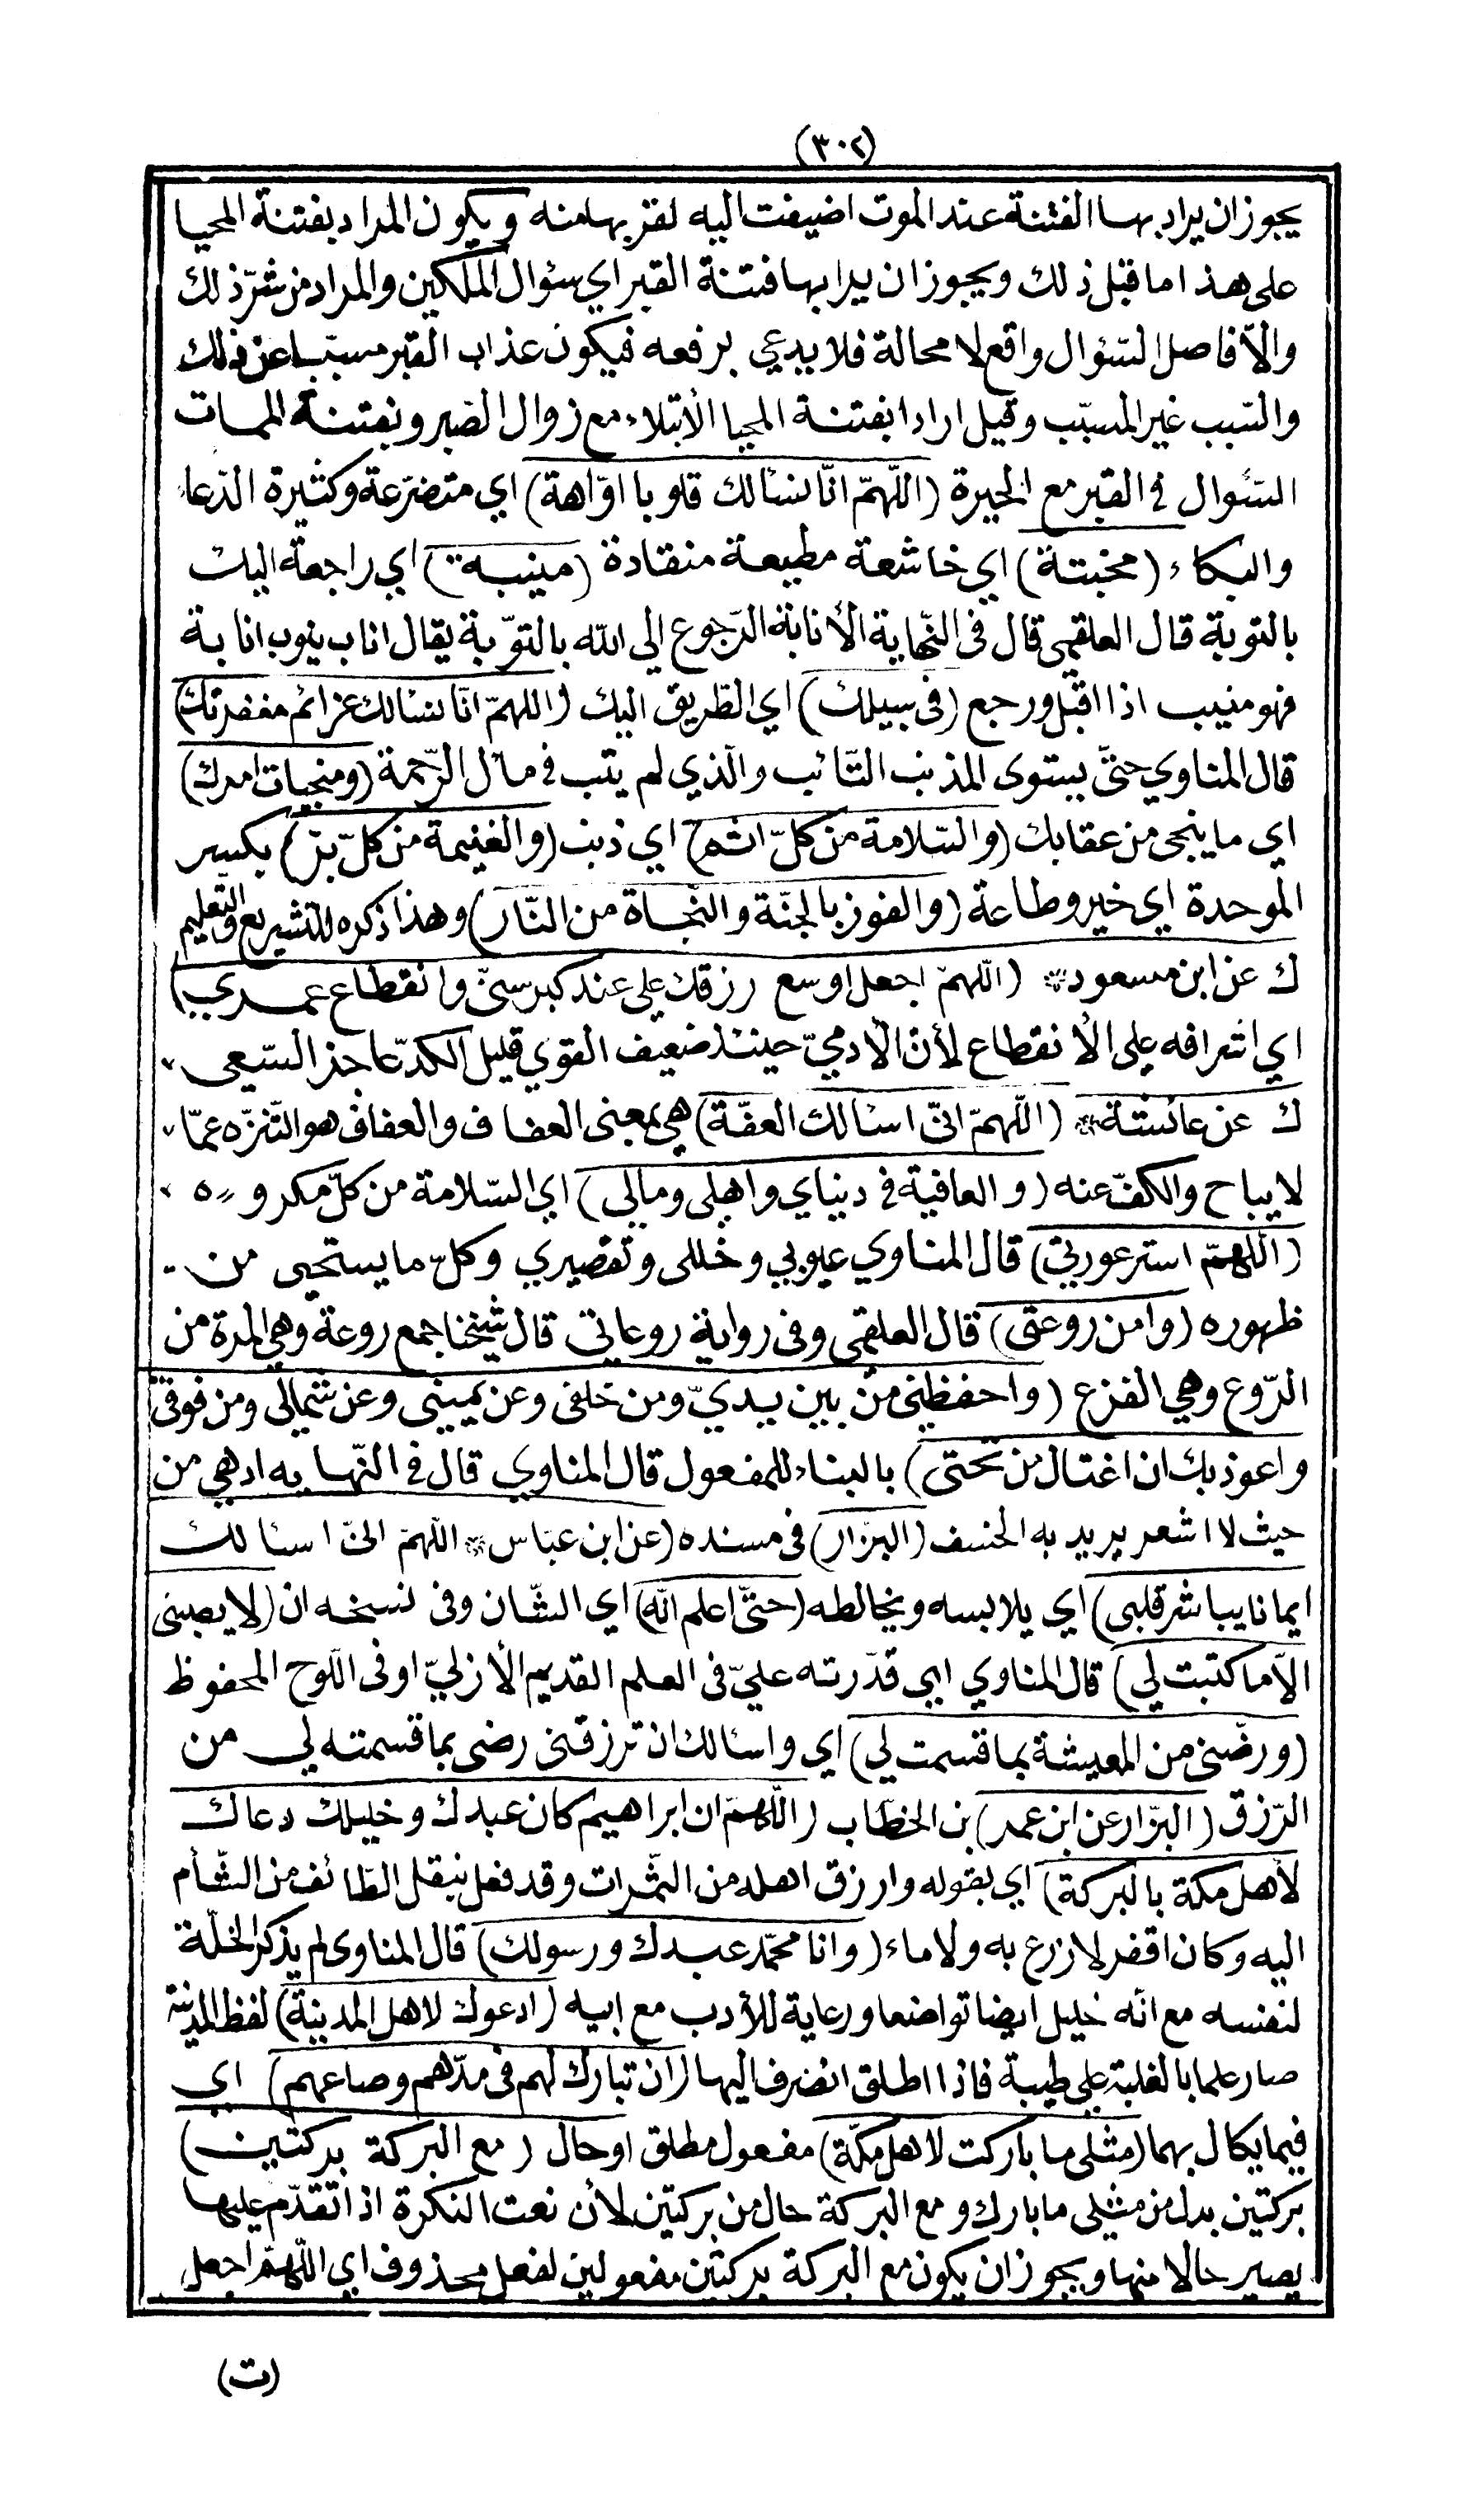 (٣٠٢)
يجوز ان يراد بها الفتنة عند الموت اضيفت اليه لقربها منه ويكون المراد بفتنة المحيا
على هذا ما قبل ذلك ويجوز ان يرا بها فتنة القبر اي سؤال الملكين والمراد من شرّ ذلك
والّا فاصل السّؤال واقع لا محالة فلا يدعي برفعه فيكون عذاب القبر مسبّبا عن ذلك
والسّبب غير المسبّب وقيل ارادا بفتنة المحيا الأبتلاء مع زوال الصّبر وبفتنة الممات
السّئوال في القبر مع الحيرة (اللّهمّ انّا نسئالك قلوبا اوّاهة) اي متضرّعة وكثيرة الدّعاء
والبكاء (مخبتة) اي خاشعة مطيعة منقادة (منيبة) اي راجعة اليك
بالتوبة قال العلقمي قال في النّهاية الأنابة الرّجوع الي الله بالتوّبة يقال اناب ينوب انابة
فهو منيب اذا اقبل ورجع (في سبيلك) اي الطّريق اليك (اللهمّ انّا نسئالك عزائم مغفرتك)
قال المناوي حتّى يستوى المذنب التّائب والّذي لم يتب في مال الرّحمة (ومنجيات امرك)
اي ما ينجى من عقابك (والسّلامة من كلّ اثم) اي ذنب (والغنيمة من كلّ برّ) بكسر
الموحدة اي خير وطاعة (والفوز بالجنّة والنّجاة من النّار) وهذا ذكره للتّشريع والتّعليم
ك عن ابن مسعود * (اللّهمّ اجعل اوسع رزقك علي عند كبر سنّى وانقطاع عمري)
اي اشرافه علي الأنقطاع لأنّ الآدميّ حينئذ ضعيف القوي قليل الكدّ عاجز السّعي
ك عن عائشة * (اللّهمّ انّى اسئالك العفّة) هي بمعنى العفاف والعفاف هو التّنزّه عمّا
لا يباح والكفّ عنه (والعافية في دنياي واهلى ومالي) اي السّلامة من كلّ مكروه
(اللّهمّ استر عورتي) قال المناوي عيوبي وخللى وتقصيري وكلّ ما يستحيى من
ظهوره (وامن روعتى) قال العلقمي وفى رواية روعاتي قال شيخنا جمع روعة وهي المرة من
الرّوع وهي الفزع (واحفظني من بين يديّ ومن خلفى وعن يمينى وعن شمالى ومن فوقى
واعوذ بك ان اغتال من تحتى) بالبناء للمفعول قال المناوي قال في النّهايه ادهي من
حيث لا اشعر يريد به الخسف (البزّار) فى مسنده (عن ابن عبّاس * اللّهمّ انّى اسئالك
ايمانا يباشر قلبى) اي يلابسه ويخالطه (حتّى اعلم انّه) اي الشّان وفى نسخه ان (لا يصيبنى
الّا ما كتبت لي) قال المناوي ايى قدّرته عليّ فى العلم القديم الأزليّ او فى اللّوح المحفوظ
(ورضّنى من المعيشة بما قسمت لي) اي واسئالك ان ترزقنى رضى بما قسمته لي من
الرّزق (البزّار عن ابن عمر) بن الخطّاب (اللّهمّ ان ابراهيم كان عبدك وخليلك دعاك
لأهل مكة بالبركة) اي بقوله وارزق اهله من الثّمرات وقد فعل بنقل الطّائف من الشّأم
اليه وكان اقفر لا زرع به ولا ماء (وانا محمّد عبدك ورسولك) قال المناوى لم يذكر الخلّة
لنفسه مع انّه خليل ايضا تواضعا ورعاية للأدب مع ابيه (ادعوك لاهل المدينة) لفظ المدينة
صار علما بالغلبة علي طيبة فاذا اطلق انصرف اليها (ان تبارك لهم فى مدّهم وصاعهم) اي
فيما يكال بهما (مثلى ما باركت لاهل مكّة) مفعول مطلق او حال (مع البركة بركتين)
بركتين بدل من مثلى ما بارك ومع البركة حال من بركتين لأن نعت النكرة اذا تقدّم عليها
يصير حالا منها ويجوز ان يكون مع البركة بركتين مفعولين لفعل محذوف اي اللّهمّ اجعل
(ت)